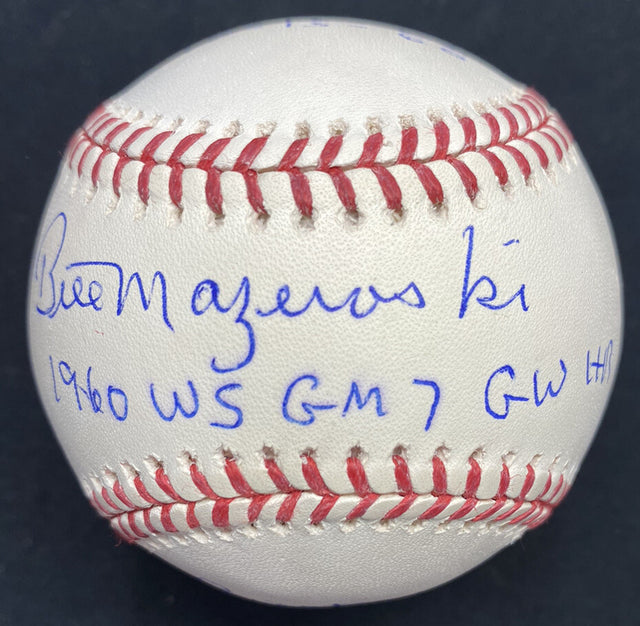 Bill Mazeroski
1960 WS GM 7 GW HR